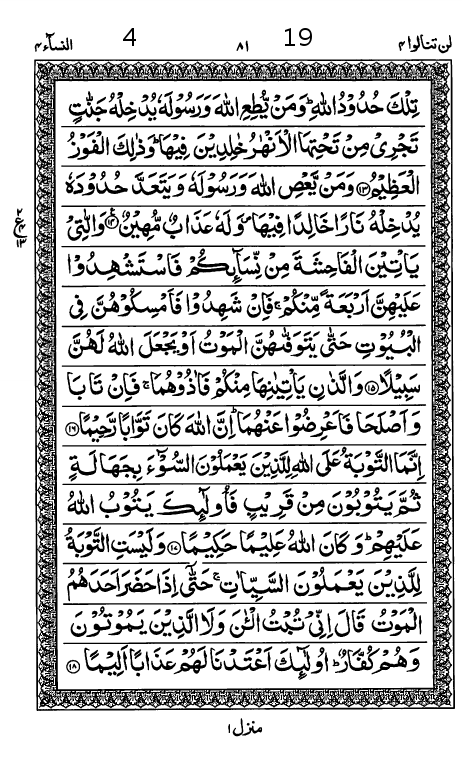 لن تنالوا ۴ ۸۱ 19 4 النسآء ۴
تِلْكَ حُدُوْدُ اللّٰهِ ؕ وَمَنْ يُّطِعِ اللّٰهَ وَرَسُوْلَهٗ يُدْخِلْهُ جَنّٰتٍ
تَجْرِىْ مِنْ تَحْتِهَا الْاَنْهٰرُ خٰلِدِيْنَ فِيْهَا ؕ وَذٰلِكَ الْفَوْزُ
الْعَظِيْمُ ﴿۱۳﴾ وَمَنْ يَّعْصِ اللّٰهَ وَرَسُوْلَهٗ وَيَتَعَدَّ حُدُوْدَهٗ
يُدْخِلْهُ نَارًا خَالِدًا فِيْهَا ۪ وَلَهٗ عَذَابٌ مُّهِيْنٌ ﴿۱۴﴾ وَالّٰتِىْ
يَاْتِيْنَ الْفَاحِشَةَ مِنْ نِّسَآئِكُمْ فَاسْتَشْهِدُوْا
عَلَيْهِنَّ اَرْبَعَةً مِّنْكُمْ ۚ فَاِنْ شَهِدُوْا فَاَمْسِكُوْهُنَّ فِى
الْبُيُوْتِ حَتّٰى يَتَوَفّٰهُنَّ الْمَوْتُ اَوْ يَجْعَلَ اللّٰهُ لَهُنَّ
سَبِيْلًا ﴿۱۵﴾ وَالَّذٰنِ يَاْتِيٰنِهَا مِنْكُمْ فَاٰذُوْهُمَا ۚ فَاِنْ تَابَا
وَاَصْلَحَا فَاَعْرِضُوْا عَنْهُمَا ؕ اِنَّ اللّٰهَ كَانَ تَوَّابًا رَّحِيْمًا ﴿۱۶﴾
اِنَّمَا التَّوْبَةُ عَلَى اللّٰهِ لِلَّذِيْنَ يَعْمَلُوْنَ السُّوْٓءَ بِجَهَالَةٍ
ثُمَّ يَتُوْبُوْنَ مِنْ قَرِيْبٍ فَاُولٰٓئِكَ يَتُوْبُ اللّٰهُ
عَلَيْهِمْ ؕ وَكَانَ اللّٰهُ عَلِيْمًا حَكِيْمًا ﴿۱۷﴾ وَلَيْسَتِ التَّوْبَةُ
لِلَّذِيْنَ يَعْمَلُوْنَ السَّيِّاٰتِ ۚ حَتّٰٓى اِذَا حَضَرَ اَحَدَهُمُ
الْمَوْتُ قَالَ اِنِّىْ تُبْتُ الْئٰنَ وَلَا الَّذِيْنَ يَمُوْتُوْنَ
وَهُمْ كُفَّارٌ ؕ اُولٰٓئِكَ اَعْتَدْنَا لَهُمْ عَذَابًا اَلِيْمًا ﴿۱۸﴾
۲
ع
۱۳
منزل ۱